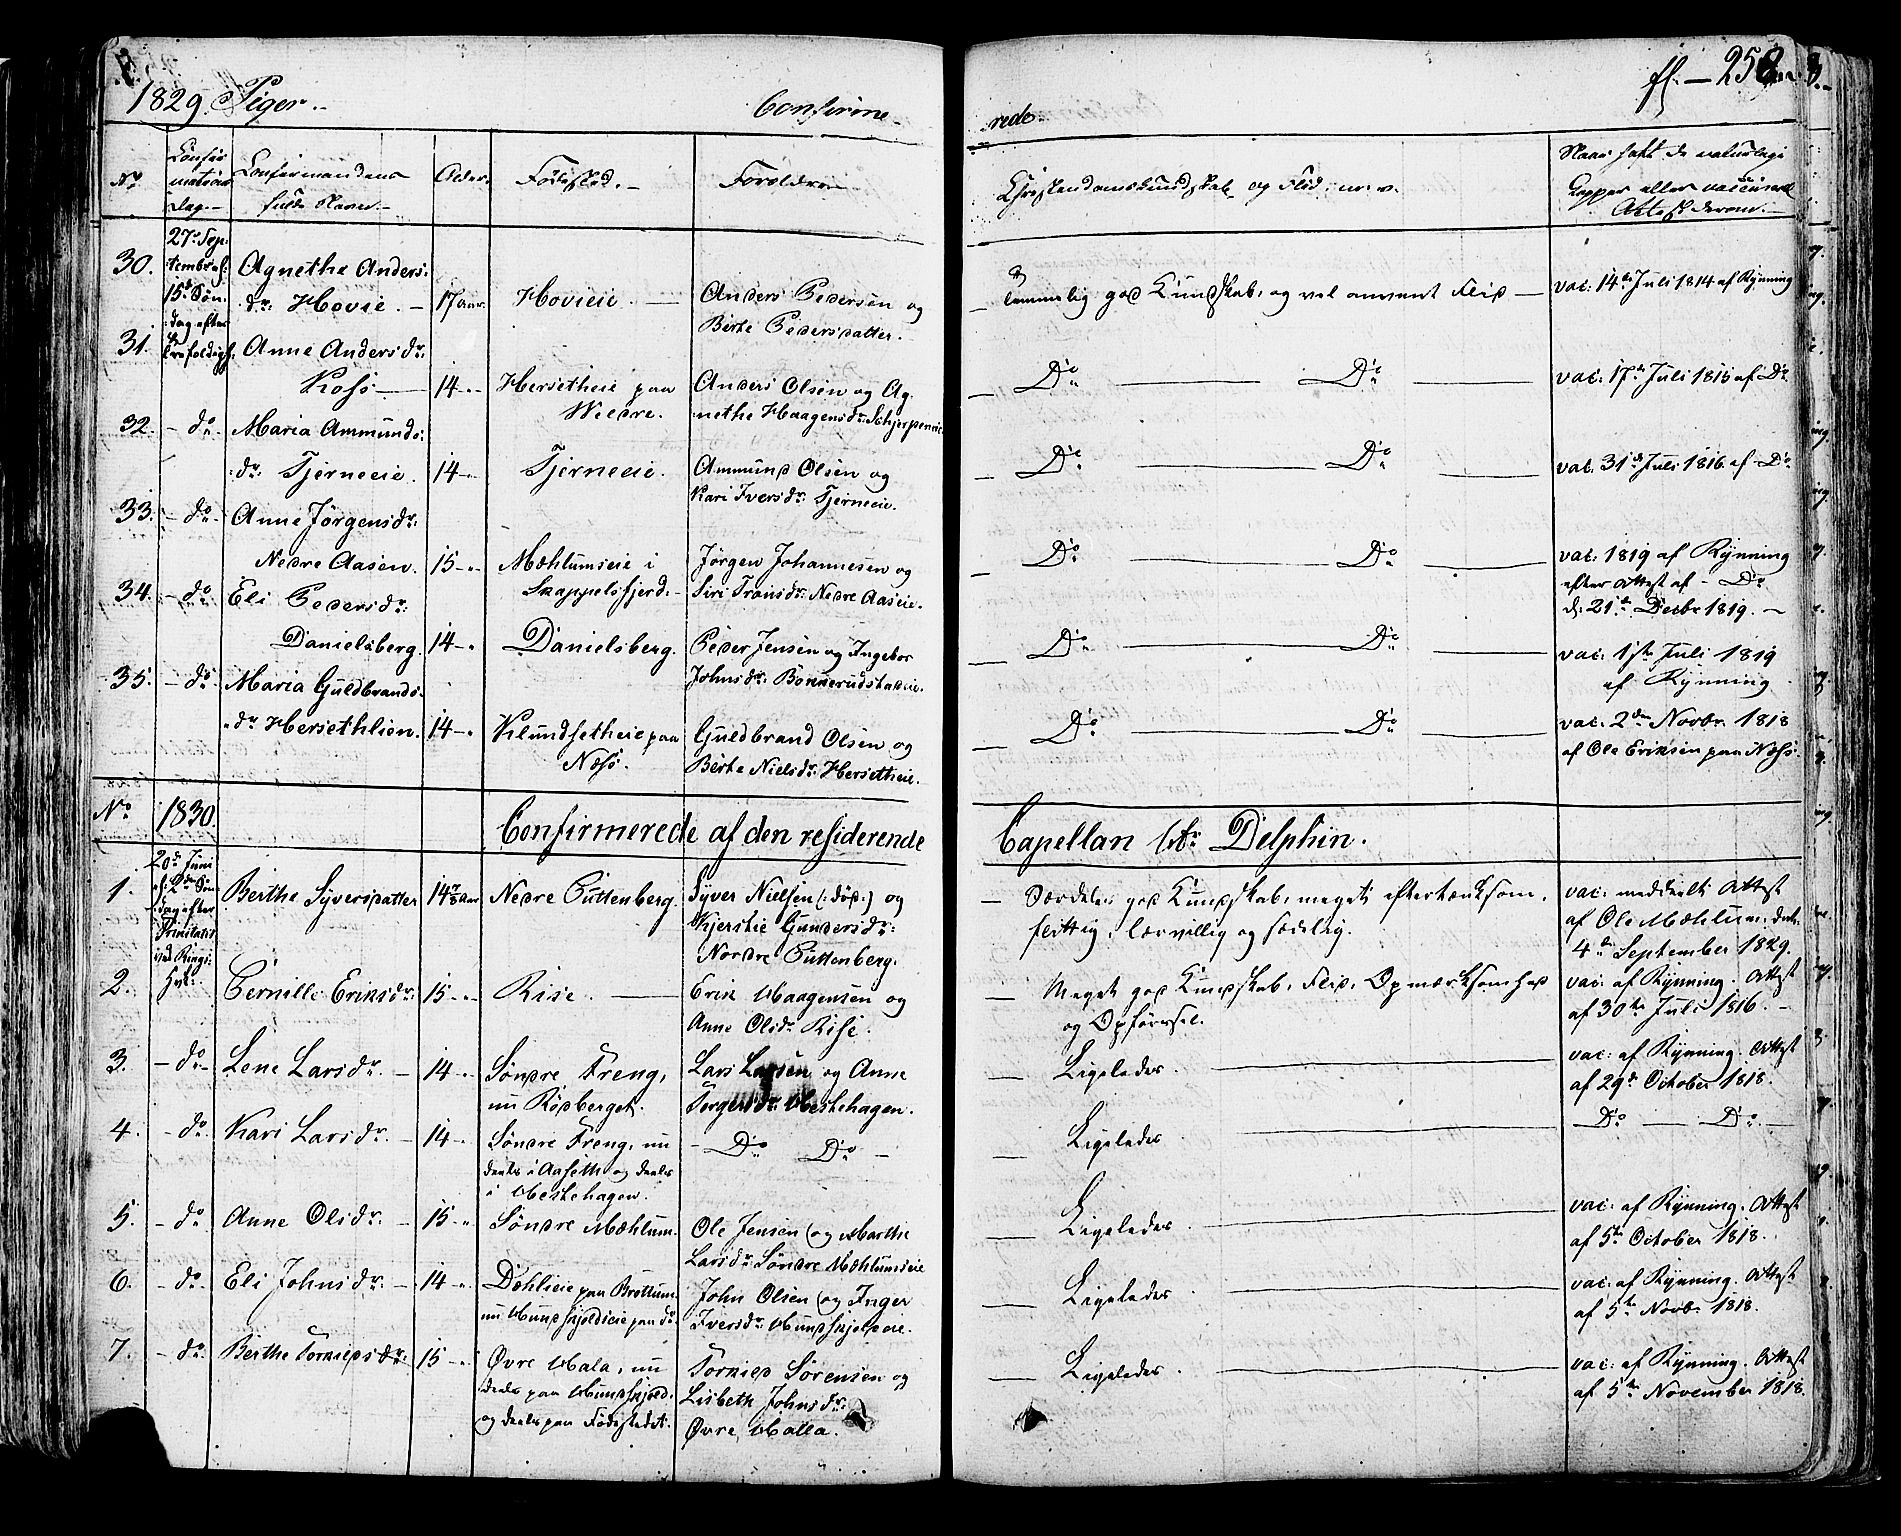 1829. Piger. Confirme-
rede. ff. — 258
No. Confirmations Dag. Confirmandens fulde Navn. Alder. Fødested. Forældre
Christendomskundskab og Flid m. v. Naar havt de naturlige Kopper eller vaccineret Attest derom.
30. 27de Sep-
tembr af:
15d Søn-
dag efter
Trefoldigh.
Agnethe Anders-
dr: Hovie. — 17 Aar. Hovieie. — Anders Pedersen og
Berte Pedersdatter.
Temmelig god Kundskab, og vel anvent Flid — vac: 14de Juli 1814 af Rynning
31. Anne Andersdr:
Kosø — 14 — Hersetheie paa
Nedre. Anders Olsen og Ag-
nethe Haagensdr: Skjerpeneie.
Do — Do — vac: 17de Juli 1815 af Do
32. — do. Maria Ammunds-
dr: Tjerneeie. 14 — Tjerneeie. Ammund Olsen og
Kari Iversdr: Tjerneeie.
Do — Do — vac: 31de Juli 1816 af Do
33. — do. Anne Jørgensdr:
Nedre Aasen. 15 — Mæhlumseie i
Skappelsfjerd. — Jørgen Johannesen og
Siri Tronsdr: Nedre Aaseie.
Do — Do — vac: 1819 af Rynning
efter Attest af — Do
d: 21de Decbr 1819. —
34. — do. Eli Pedersdr:
Danielsberg. 14 — Danielsberg. Peder Jensen og Ingebor
Johnsdr: Bonnerudstadeie.
Do — Do — vac: 1ste Juli 1819
af Rynning
35. — do. Maria Guldbrands-
dr: Hersethlien. 14 — Klundsetheie paa
Næsø. Guldbrand Olsen og
Berte Nielsdr: Hersetheie.
Do — Do — vac: 2den Novbr. 1818
af Ole Eriksen paa Næsø.
No. 1830. Confirmerede af den residerende Capellan Hr: Delphin.
1. 20de Juni
af: 2den Søn-
dag efter
Trinitatis
ved Rings-
Berthe Syversdatter 14 Aar Nedre Guttenberg. Syver Nielsen (: død :) og
Kjerstie Gundersdr:
Nordre Guttenberg.
Særdeles god Kundskab, meget eftertænksom,
flittig, lærvillig og sædelig.
vac: meddeelt Attest
af Ole Mæhlum. dat.
4de September 1829.
2. Pernille Eriksdr: 15 — Rise. — Erik Haagensen og
Anne Olsdr: Rise.
Meget god Kundskab, Flid, Opmærksomhed
og Opførsel.
vac: af Rynning. Attest
af 30te Juli 1816. —
3. — do — Lene Larsdr. — 14 — Søndre Freng,
nu Rødberget. Lars Larsen og Anne
Torgersdr: Westehagen.
Ligeledes. — vac: af Rynning. Attest
af 29de October 1818.
4. — do Kari Larsdr. — 14 — Søndre Freng, nu
deels i Aaseth og deels
i Westehagen. — Do Do —
Ligeledes — Do — Do. —
5. — do Anne Olsdr. — 15 — Søndre Mæhlum. Ole Jensen (og Marthe
Larsdr: Søndre Mæhlumseie
Ligeledes. — vac: af Rynning. Attest
af 5te October 1818.
6. — do. Eli Johnsdr. — 14 — Dehlieie paa Brøttum
nu Mundskjoldieie paa do. John Olsen (og Inger
Iversdr: Mundskjoldeie.
Ligeledes — vac: af Rynning. Attest
af 5te Novbr. 1818.
7. — do. Berthe Torkiedsdr: 15 — Øvre Hala, nu
deels paa Mundskjold,
og deels paa Fødestedet. Torkied Sørensen og
Lisbeth Johnsdr:
Øvre, Halla.
Ligeledes. — vac: af Rynning. Attest
af 5te November 1818.